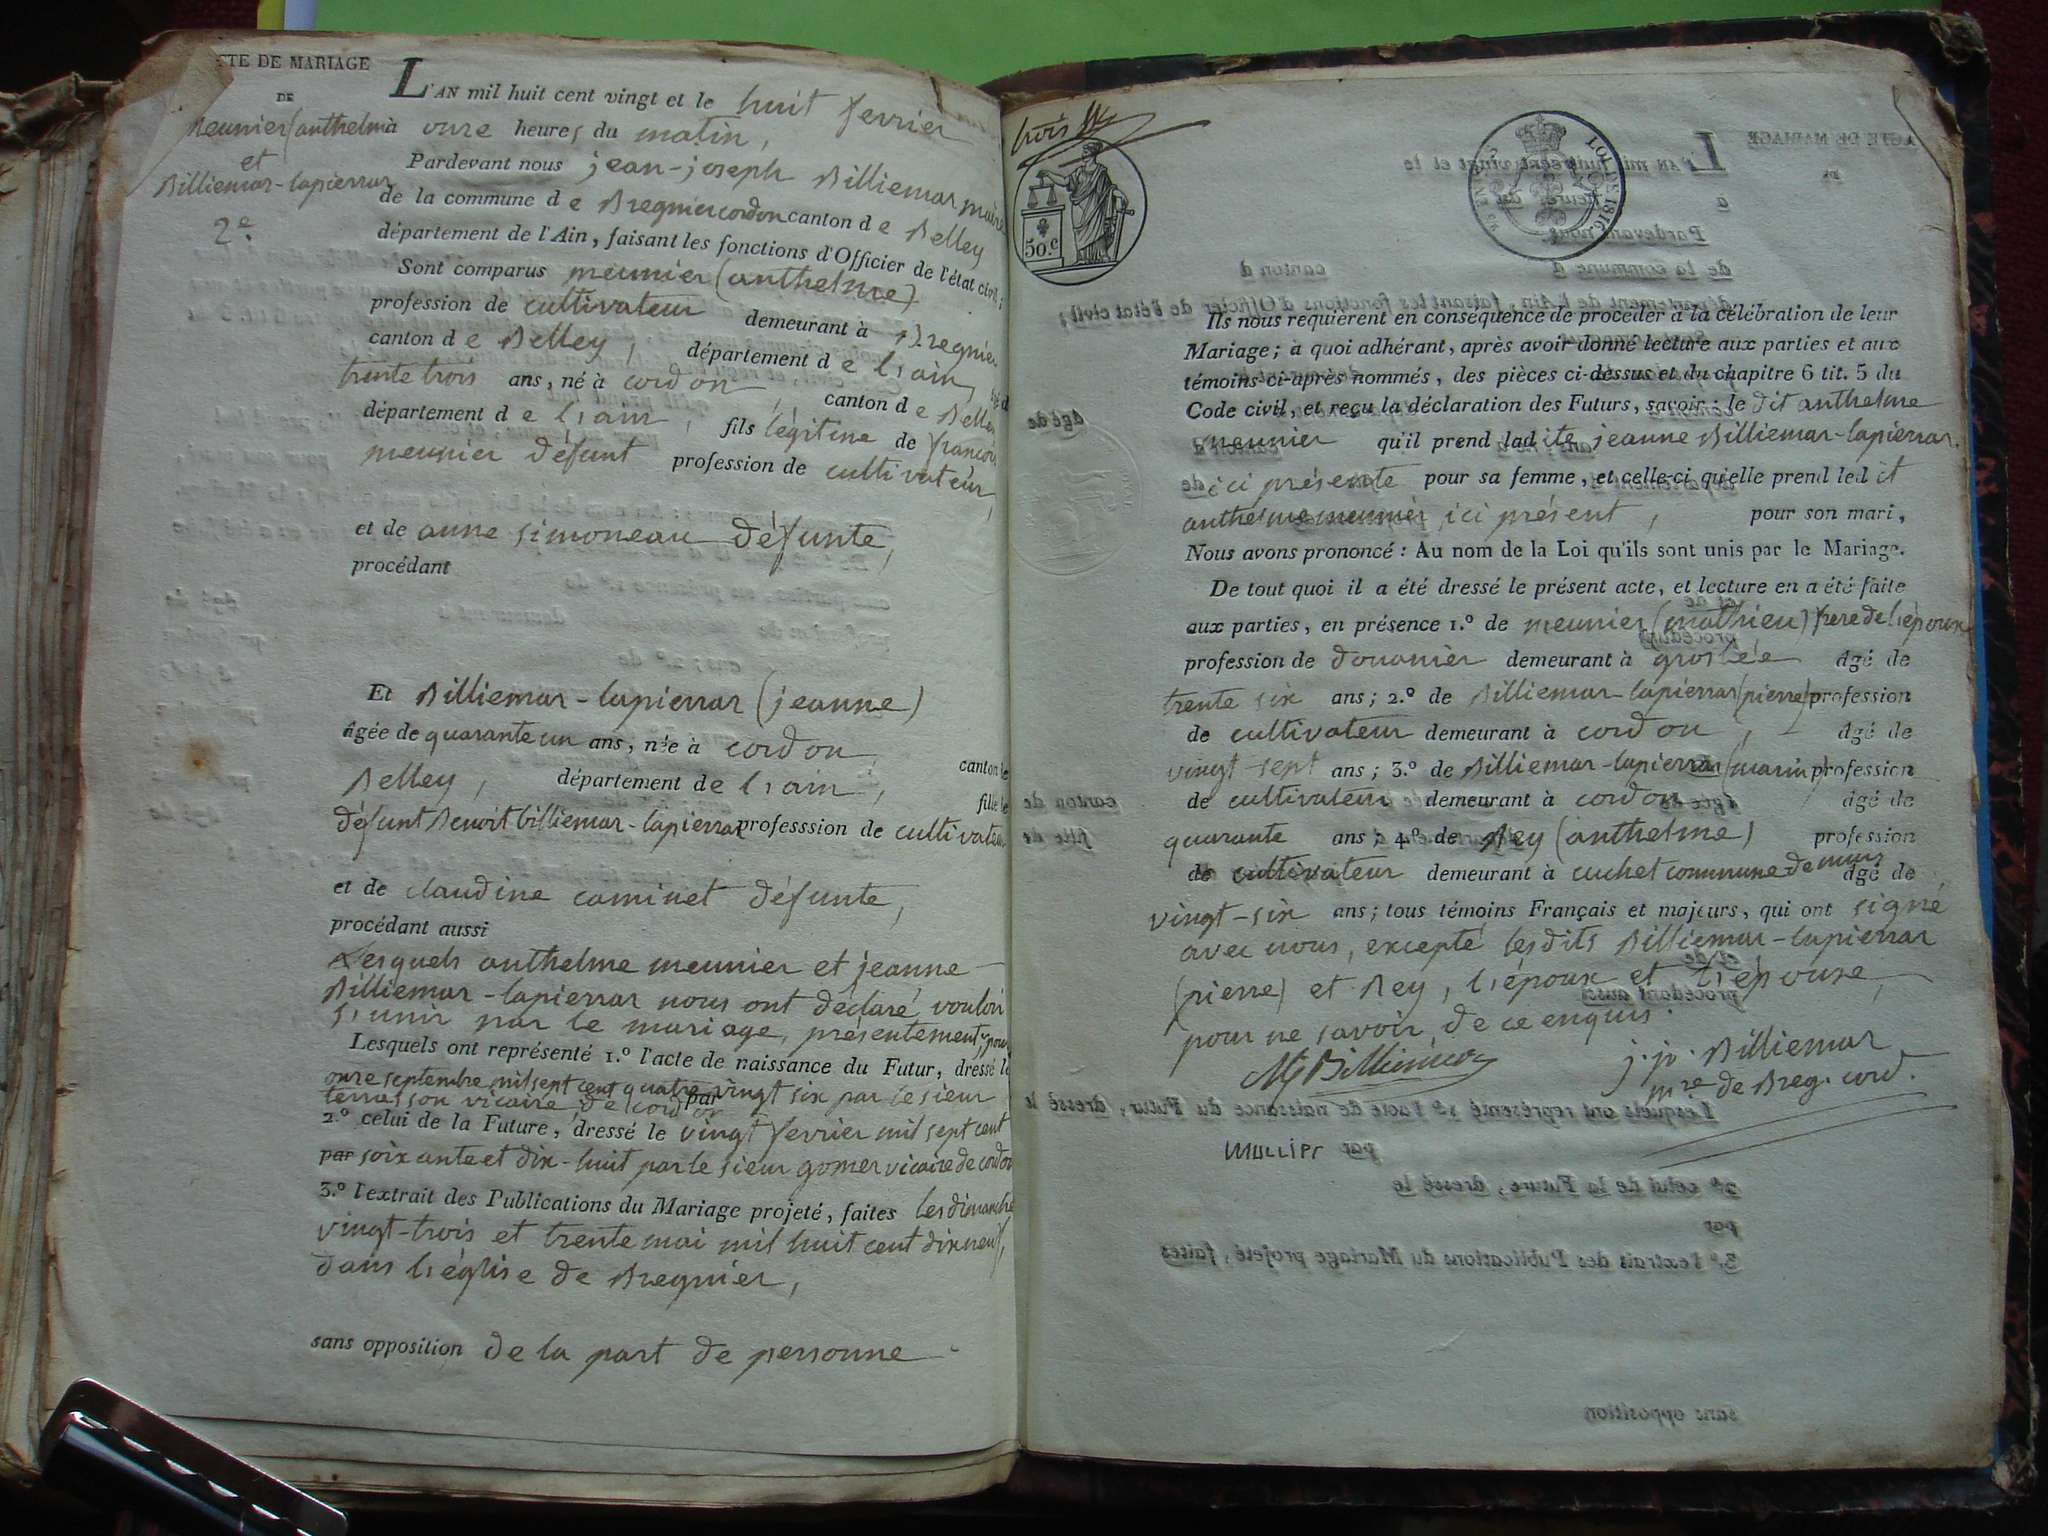 TE DE MARIAGE
DE
Meunier (anthelme
et
Billiemar-lapierrar
2e.
L'AN mil huit cent vingt et le huit fevrier
à onze heures du matin,
Pardevant nous jean-joseph Billiemar maire
de la commune de Bregniercordon canton de Belley
département de l'Ain, faisant les fonctions d'Officier de l'état civil;
Sont comparus meunier (anthelme)
profession de cultivateur demeurant à Bregnier
canton de Belley, département de l'ain,
trente trois ans, né à cordon, canton de Belley
département de l'ain, fils légitime de françois
meunier défunt profession de cultivateur,
et de anne simoneau défunte,
procédant
Et Billiemar-lapierrar (jeanne)
âgée de quarante un ans, née à cordon, canton de
Belley, département de l'ain, fille de
défunt Benoit billiemar-lapierrar professsion de cultivateur
et de claudine caminet défunte,
procédant aussi
Lesquels anthelme meunier et jeanne
Billiemar-lapierrar nous ont déclaré vouloir
s'unir par le mariage, présentement,
Lesquels ont représenté 1.º l'acte de naissance du Futur, dressé le
onze septembre mil sept cent quatre vingt six par le sieur
terrasson vicaire de cordon par
2.º celui de la Future, dressé le vingt fevrier mil sept cent
par soixante et dix-huit par le sieur gomer vicaire de cordon
3.º l'extrait des Publications du Mariage projeté, faites les dimanche
vingt-trois et trente mai mil huit cent dix neuf,
dans l'église de Bregnier,
sans opposition de la part de personne
trois
50.c
LOI DE 1816
Ils nous requièrent en conséquence de procéder à la célébration de leur
Mariage; à quoi adhérant, après avoir donné lecture aux parties et aux
témoins ci-après nommés, des pièces ci-dessus et du chapitre 6 tit. 5 du
Code civil, et reçu la déclaration des Futurs, savoir: le dit anthelme
meunier qu'il prend ladite jeanne Billiemar-lapierrar
ici présente pour sa femme, et celle-ci qu'elle prend ledit
anthelme meunier ici présent, pour son mari,
Nous avons prononcé: Au nom de la Loi qu'ils sont unis par le Mariage.
De tout quoi il a été dressé le présent acte, et lecture en a été faite
aux parties, en présence 1.º de meunier (mathieu) frere de l'époux
profession de douanier demeurant à groslée âgé de
trente six ans; 2.º de Billiemar-lapierrar (pierre) profession
de cultivateur demeurant à cordon, âgé de
vingt-sept ans; 3.º de Billiemar-lapierrar (marin) profession
de cultivateur demeurant à cordon âgé de
quarante ans; 4.º de Rey (anthelme) profession
de cultivateur demeurant à cuchet commune de murs âgé de
vingt-six ans; tous témoins Français et majeurs, qui ont signé
avec nous, excepté lesdits Billiemar-lapierrar
(pierre) et Rey, l'époux et l'épouse,
pour ne savoir de ce enquis.
j. jo. Billiemar
mre de Breg. cord.